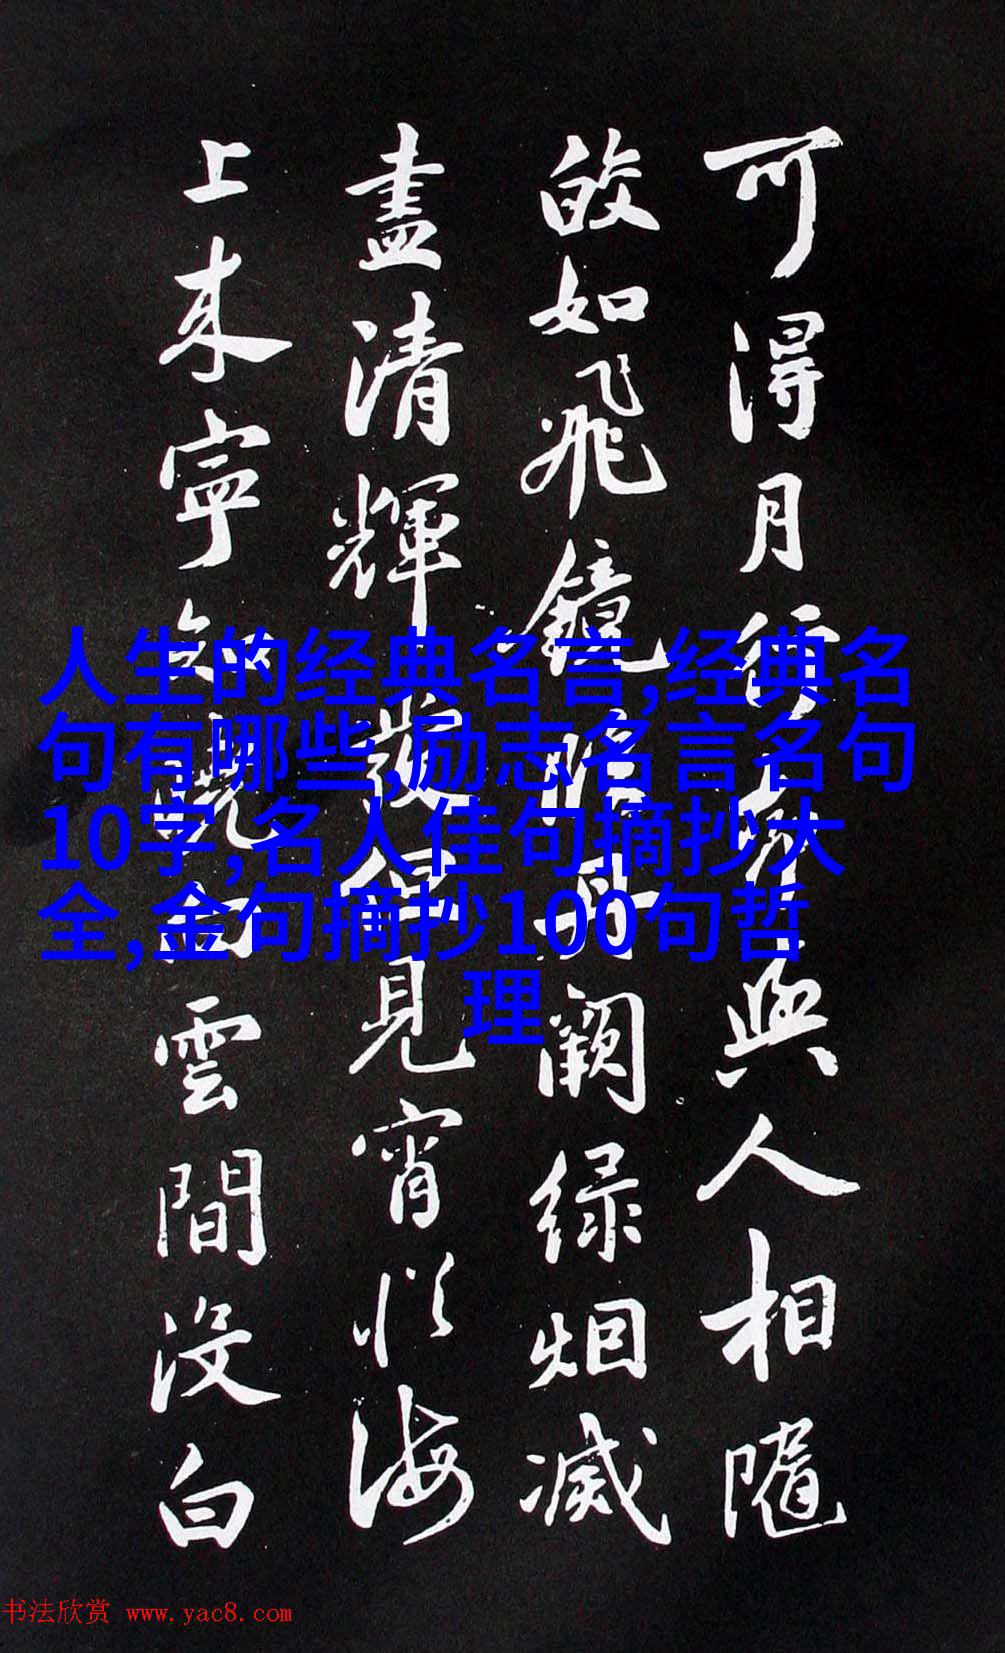 可得月行與人相隨
皎如飛鏡临丹闕绿烟滅
盡清輝發但見宵從海
上来寧知曉向雲間沒白
人生的经典名言,经典名
句有哪些,励志名言名句
10字,名人佳句摘抄大
全,金句摘抄100句哲
理
书法欣赏 www.yac8.com